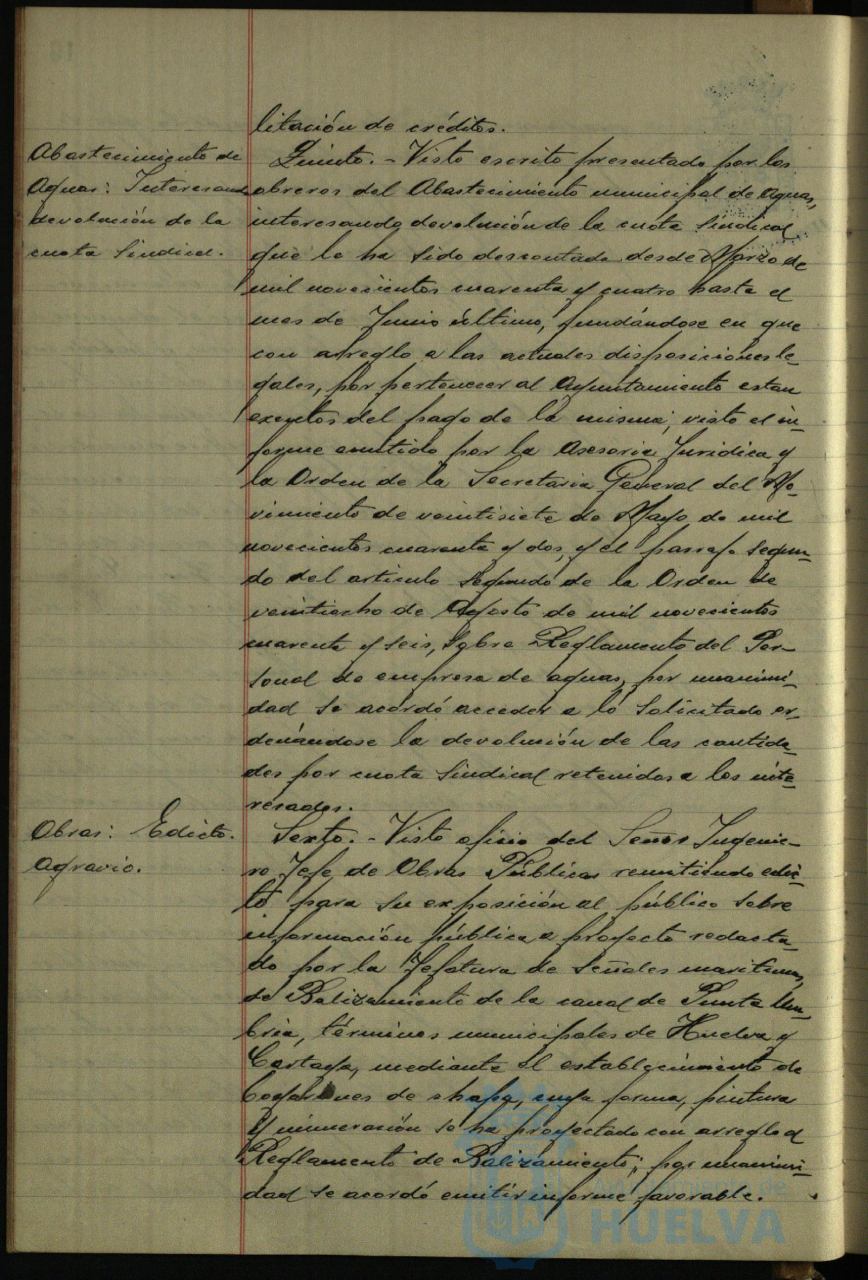 litación de créditos.
Abastecimiento de
Aguas: Interesando
devolución de la
cuota Sindical.
Quinto.- Visto escrito presentado por los
obreros del Abastecimiento municipal de Aguas,
interesando devolución de la cuota Sindical
que le ha sido descontada desde Marzo de
mil novecientos cuarenta y cuatro hasta el
mes de Junio último, fundándose en que
con arreglo a las actuales disposiciones le-
gales, por pertenecer al Ayuntamiento estan
exentos del pago de la misma; visto el in-
forme emitido por la Asesoria Juridica y
la Orden de la Secretaria General del Mo-
vimiento de veintisiete de Mayo de mil
novecientos cuarenta y dos, y el parrafo segun-
do del articulo segundo de la Orden de
veintiocho de Agosto de mil novecientos
cuarenta y seis, sobre Reglamento del Per-
sonal de empresa de aguas, por unanimi-
dad se acordó acceder a lo solicitado or-
denándose la devolución de las cantida-
des por cuota Sindical retenidas a los inte-
resados.
Obras: Edicto.
Agravio.
Sexto.- Visto oficio del Señor Ingenie-
ro Jefe de Obras Públicas remitiendo edic-
to para su exposición al público sobre
información pública a proyecto redacta-
do por la Jefatura de Señales maritimas,
de Balizamiento de la canal de Punta Um-
bria, términos municipales de Huelva y
Cartaya, mediante el establecimiento de
boyarines de chapa, cuya forma, pintura
y numeración se ha proyectado con arreglo al
Reglamento de Balizamiento; por unanimi-
dad se acordó emitir informe favorable.
Ayuntamiento de
HUELVA